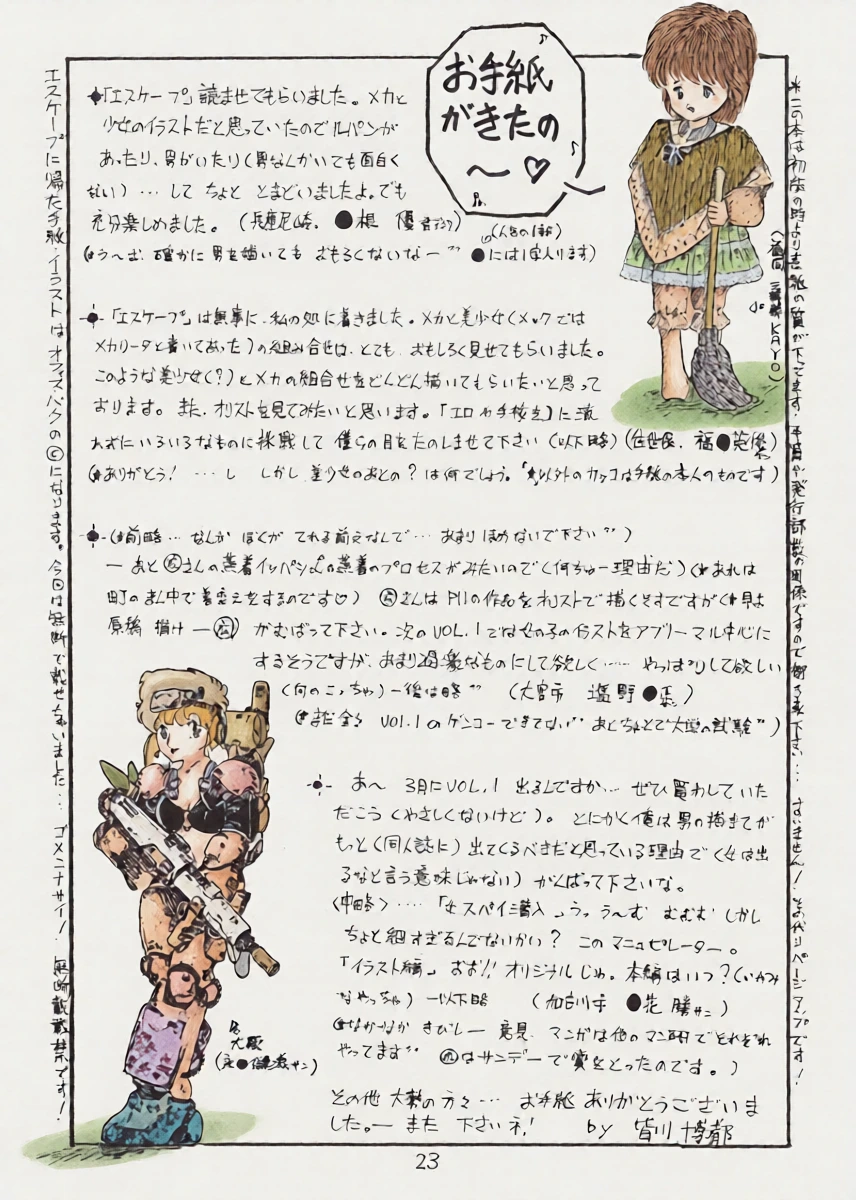 お手紙
がきたの
〜♡
「エスケープ」読ませてもらいました。メカと
少女のイラストだと思っていたのでルパンが
あったり、男がいたり(男なんかいても面白く
ない)…して ちょと とまどいましたよ。でも
充分楽しめました。(兵庫尼崎、●根 優
(うーむ 確かに男を描いても おもろくないなー
(人名の1部)
●には1字入ります)
「エスケープ」は無事に、私の処に着きました。メカと美少女(メックでは
メカリータと書いてあった)の組み合せは、とても、おもしろく見せてもらいました。
このような美少女(?)とメカの組合せをどんどん描いてもらいたいと思って
おります。また、オリストを見てみたいと思います。「エロ
にいろいろなものに挑戦して 僕らの目をたのしませて下さい(以下略)
(ありがとう! …し しかし 美少女のあとの?は何でしょう。 以外のカッコは手紙の本人のものです)
(前略… なんか ぼくが てれる前えなんで… あまり ほめないで下さい )
ー あと さんの蒸着 の蒸着のプロセスがみたいので(何ちゅー理由だ)(あれは
町のまん中で着替えをするのです♡) さんはPIIの作品をオリストで描くそうですが(早よ
原稿 描け ー ) がむばって下さい。次のVOL.1では女の子のイラストをアブノーマル中心に
するそうですが、あまり過激なものにして欲しく…… やっぱりして欲しい
(何のこっちゃ)ー後は略 (大宮市 塩野●
VOL.1のゲンコーできてない あとちょとで大型の試験 )
あ〜 3月にVOL.1 出るんですか… ぜひ買わしていた
だこう(やさしくないけど)。とにかく俺は男の描き手が
もっと(同人誌に)出てくるべきだと思っている理由で(女は出
るなと言う意味じゃない)がんばって下さいな。
(中略)…・「女スパイ うっ う〜む むむむ しかし
ちょと細すぎるんでないかい? このマニュピレーター。
「イラスト編」おお!! オリジナルじゃ。本編はいつ?(いやみ
なやっちゃ) ー以下略 (加古川市 ●花 勝サン)
(なかなか きびしー 意見 マンガは他のマン研でそれぞれ
やってます はサンデーで賞をとったのです。)
その他 大勢の方々… お手紙 ありがとうございま
した。ー また 下さいネ! by 皆川 博都
大阪
エスケープに帰た手紙・イラストは オフィスパクの©になります。今回は無断で載せちゃいました… ゴメンナサイ! 無断転載禁です!
*この本は初版の時より表紙の質が下ってます。予算や発行部数の関係ですので御了承下さい… すいません! その代りページアップです!
KAYO)
23